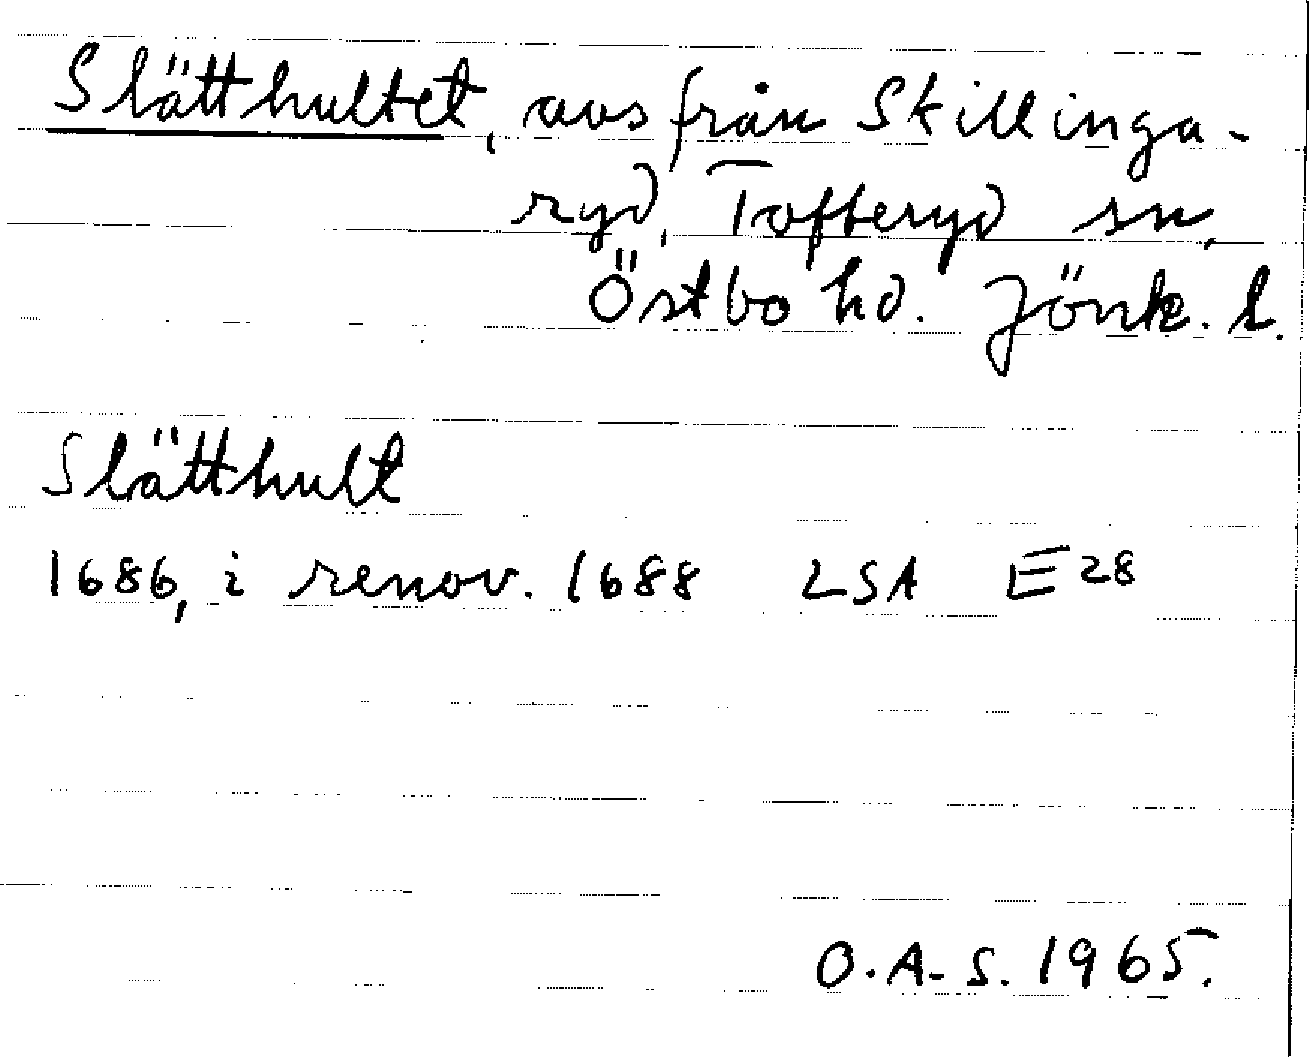 Slätthultet, avs från Skillinga-
ryd, Tofteryd sn,
Östbo hd. Jönk. l.
Slätthult
1686, i renov. 1688 LSA E28
O.A-S. 1965.